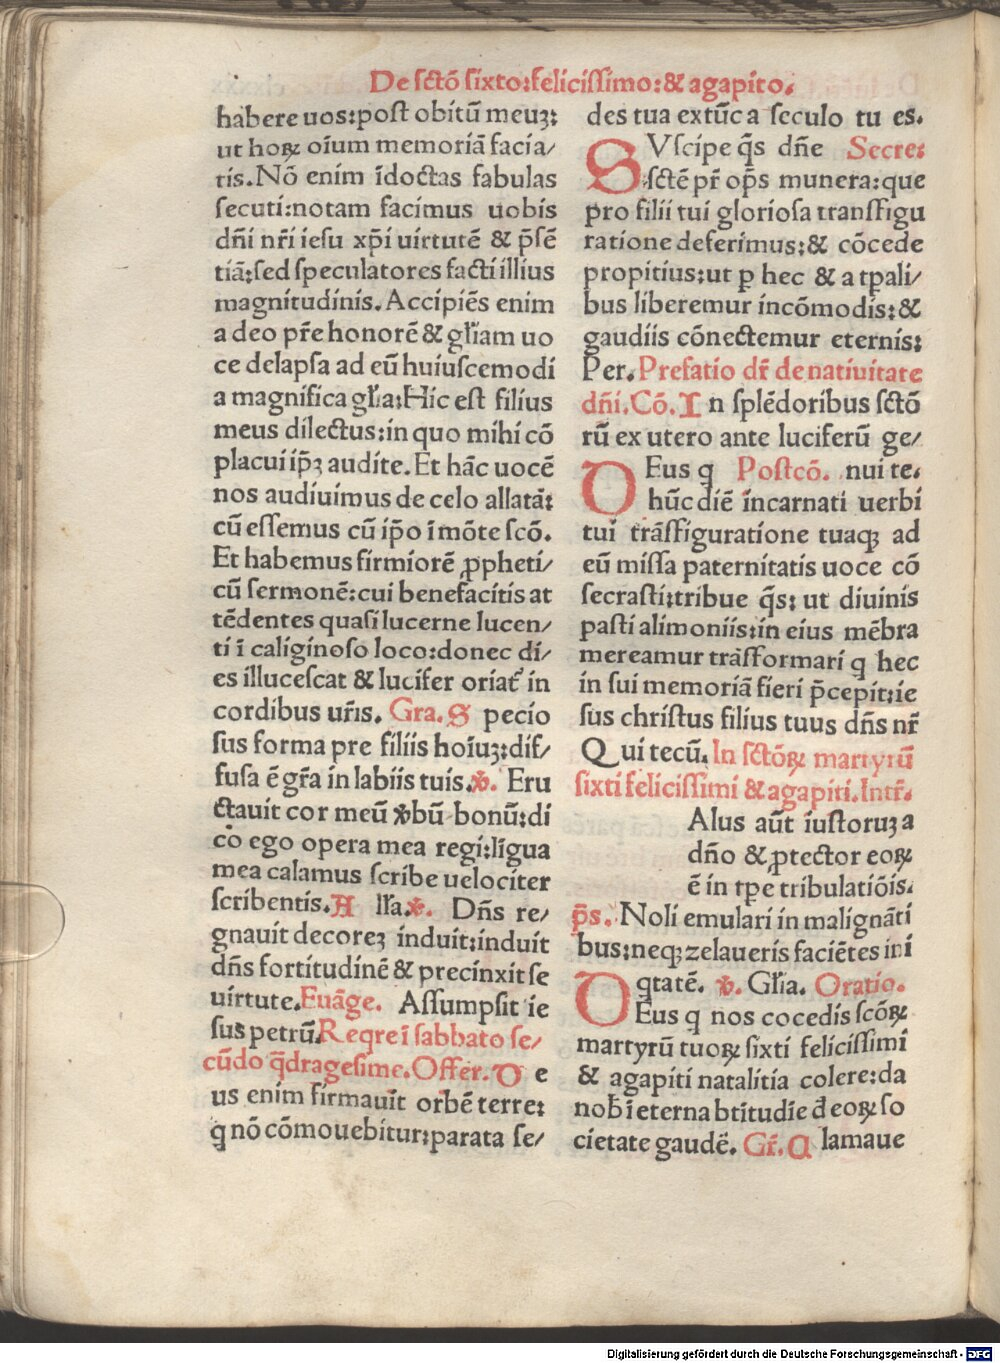 De sctō sixto:felicissimo:& agapito.
habere uos:post obitū meuꝫ:
ut hoꝝ oīum memoriā facia/
tis.Nō enim īdoctas fabulas
secuti:notam facimus uobis
dn̄i nr̄i iesu xp̄i uirtutē & p̄sē
tiā:sed speculatores facti illius
magnitudinis.Accipiēs enim
a deo pr̄e honorē & glīam uo
ce delapsa ad eū huiuscemodi
a magnifica glīa:Hic est filius
meus dilectus:in quo mihi cō
placui ip̄ꝫ audite.Et hāc uocē
nos audiuimus de celo allatā:
cū essemus cū ip̄o ī mōte scō.
Et habemus firmiorē ꝓpheti/
cū sermonē:cui benefacitis at
tēdentes quasi lucerne lucen/
ti ī caliginoso loco:donec di/
es illucescat & lucifer oriat᷑ in
cordibus ur̄is. Gra. S pecio
sus forma pre filiis hoīuꝫ:dif/
fusa ē gr̄a in labiis tuis. ℣. Eru
ctauit cor meū ℣bū bonū:di
co ego opera mea regi:līgua
mea calamus scribe uelociter
scribentis. A ll'a. ℣. Dn̄s re/
gnauit decoreꝫ induit:induit
dn̄s fortitudinē & precinxit se
uirtute.Euāge. Assumpsit ie
sus petrū.Reqre ī sabbato se/
cūdo q̄dragesime.Offer. D e
us enim firmauit orbē terre:
q̇ nō cōmouebitur:parata se/
des tua extūc a seculo tu es.
SVscipe q̄s dn̄e Secre:
sctē pr̄ op̄s munera:que
pro filii tui gloriosa transfigu
ratione deferimus:& cōcede
propitius:ut ꝑ hec & a tp̄ali/
bus liberemur incōmodis:&
gaudiis cōnectemur eternis:
Per.Prefatio dr̄ de natiuitate
dn̄i.Cō. I n splēdoribus sctō
rū ex utero ante luciferū ge/
DEus q Postcō. nui te.
hūc diē incarnati uerbi
tui trāsfiguratione tuaqꝫ ad
eū missa paternitatis uoce cō
secrasti:tribue q̄s: ut diuinis
pasti alimoniis:in eius mēbra
mereamur trāsformari q hec
in sui memoriā fieri p̄cepit:ie
sus christus filius tuus dn̄s nr̄
Q ui tecū.In sctōꝝ martyrū
sixti felicissimi & agapiti.Intr̄.
Alus aūt iustoruꝫ a
dn̄o & ꝓtector eoꝝ
ē in tp̄e tribulatiōis.
p̄s. Noli emulari in malignāti
bus:neqꝫ zelaueris faciētes ini
qtatē. ℣. Glīa. Oratio.
DEus q nos cōcedis scōꝝ
martyrū tuoꝝ sixti felicissimi
& agapiti natalitia colere:da
nob̄ ī eterna btitudīe đ eoꝝ so
cietate gaudē. Gr̄. C lamaue
Digitalisierung gefördert durch die Deutsche Forschungsgemeinschaft - DFG